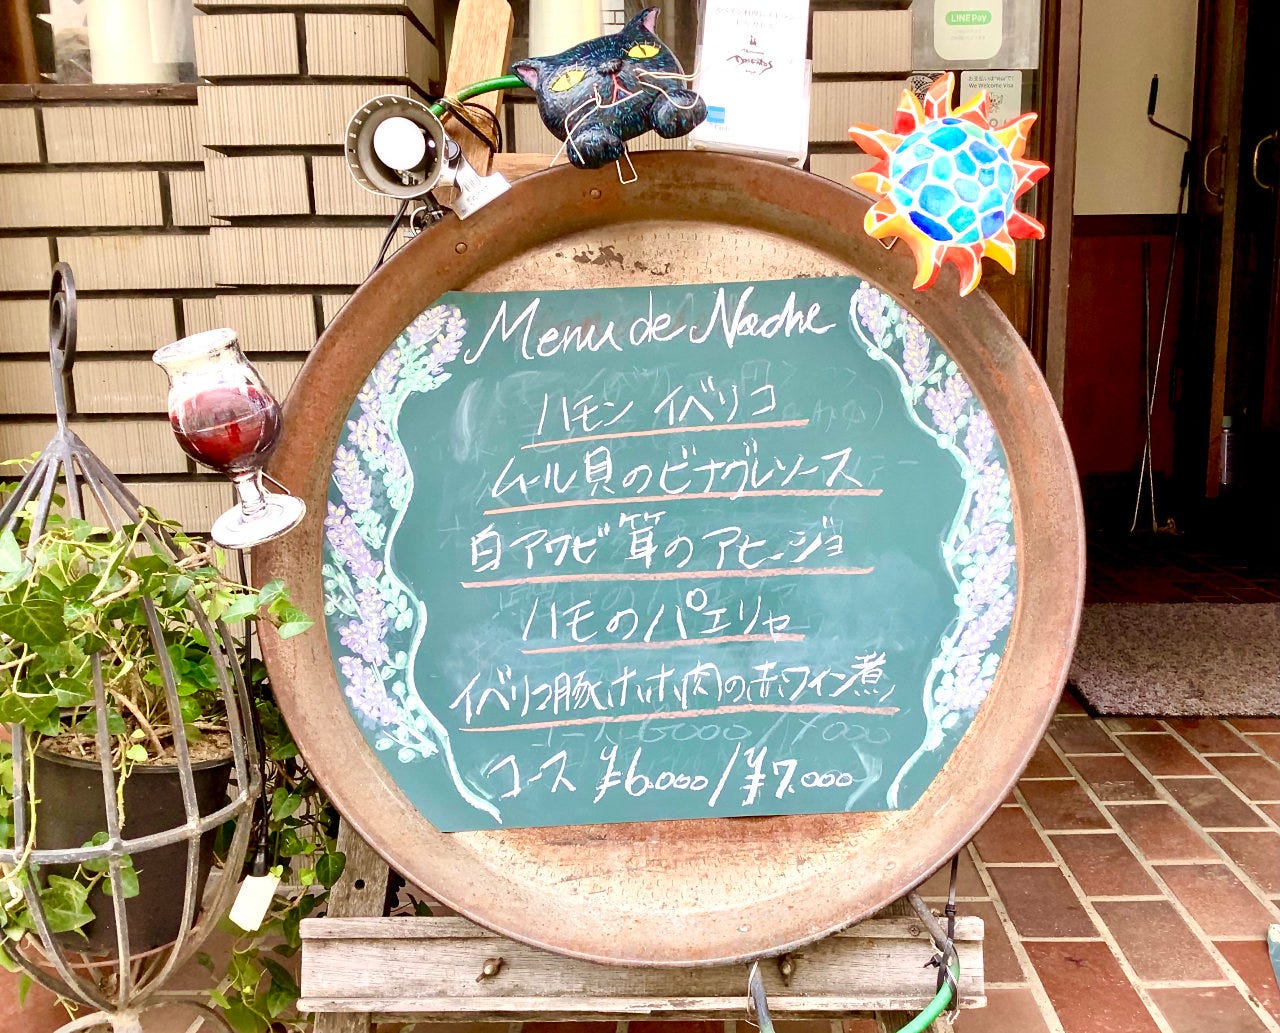 LINE Pay
We Welcome Visa
Menu de Noche
ハモン イベリコ
ムール貝のビナグレソース
白アワビ茸のアヒージョ
ハモのパエリヤ
イベリコ豚ホホ肉の赤ワイン煮
コース ¥6.000/¥7.000